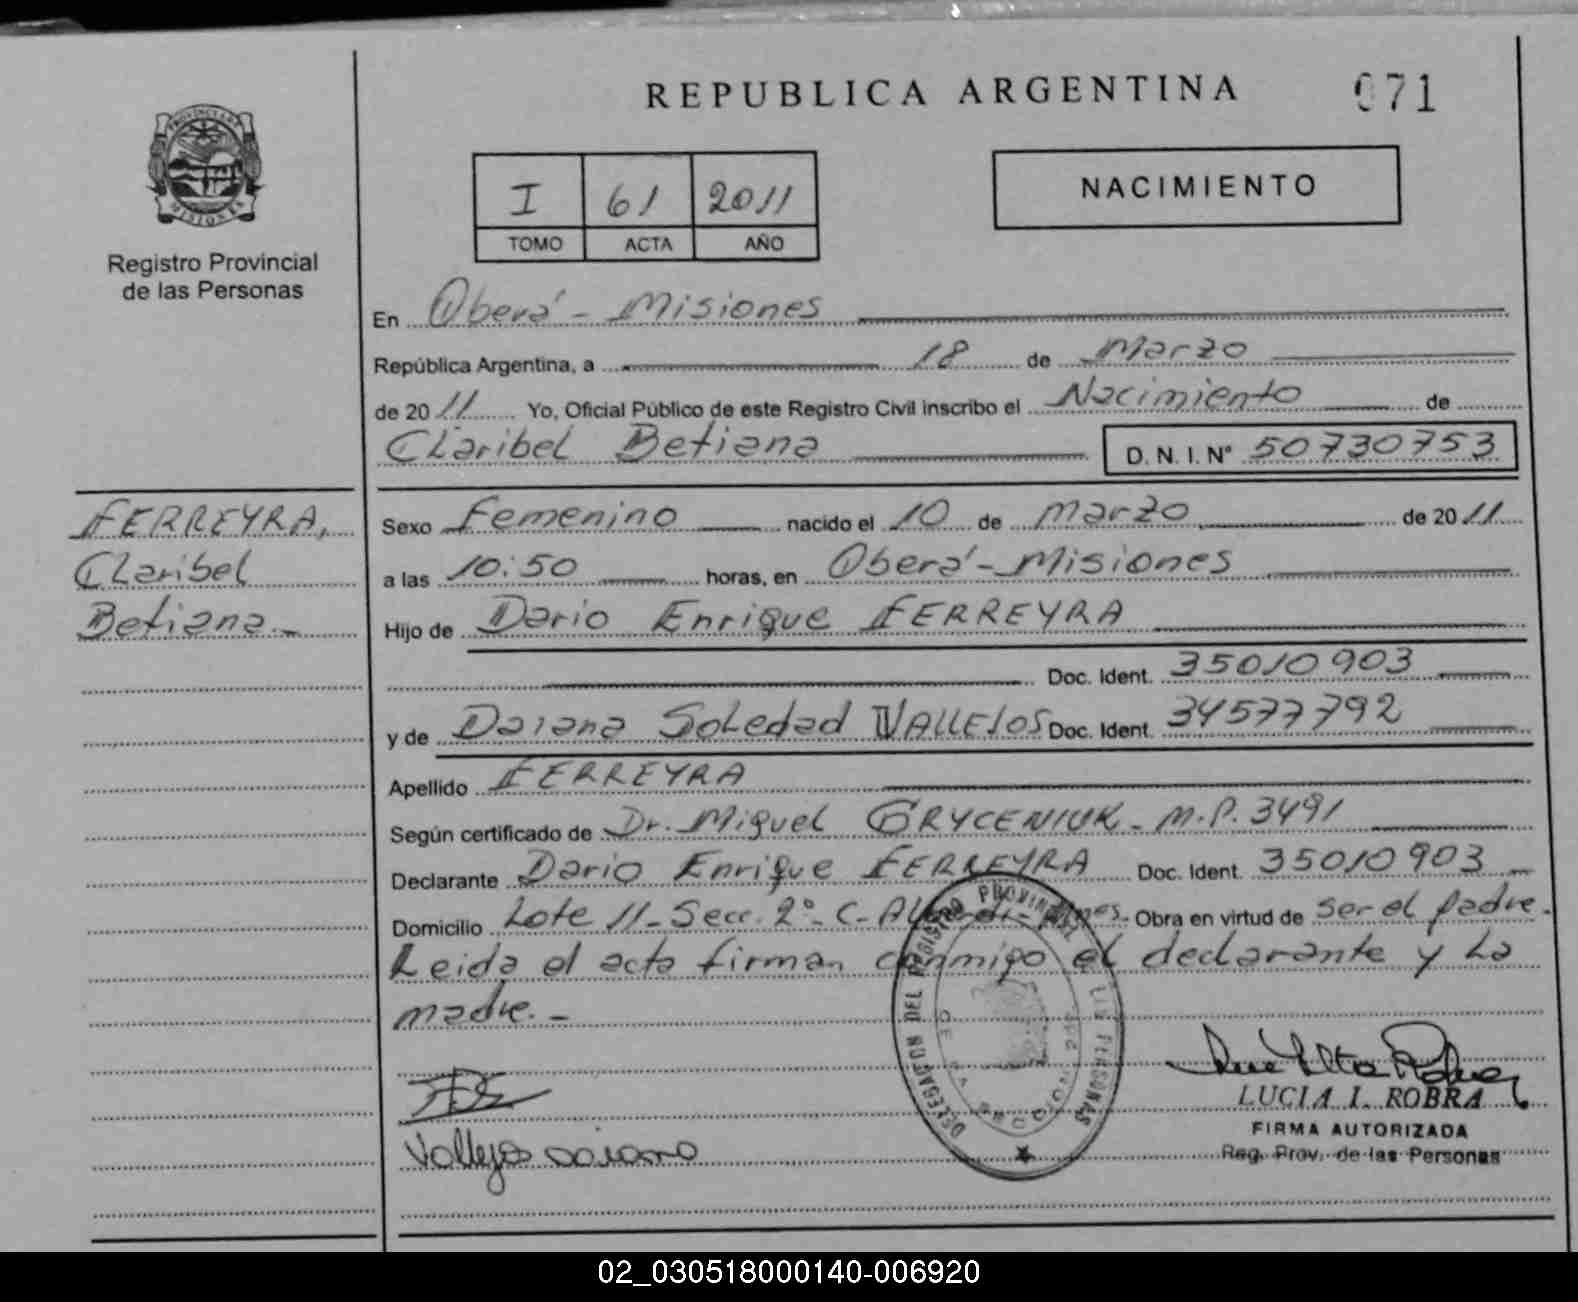 REPUBLICA ARGENTINA 071
PROVINCIA DE MISIONES
Registro Provincial
de las Personas
I 61 2011
TOMO ACTA AÑO
NACIMIENTO
En Oberá - Misiones
República Argentina, a 18 de Marzo
de 2011 Yo, Oficial Público de este Registro Civil inscribo el Nacimiento de
Claribel Betiana D. N. I. N° 50730753
FERREYRA,
Claribel
Betiana.-
Sexo Femenino nacido el 10 de Marzo de 2011
a las 10:50 horas, en Oberá - Misiones
Hijo de Dario Enrique FERREYRA
Doc. Ident. 35010903
y de Daiana Soledad VALLEJOS Doc. Ident. 34577792
Apellido FERREYRA
Según certificado de Dr. Miguel GRYCENIUK - M.P. 3491
Declarante Dario Enrique FERREYRA Doc. Ident. 35010903
Domicilio Lote 11 - Secc. 2° - C. - Obra en virtud de ser el padre.
Leida el acta firman conmigo el declarante y la
madre. -
DELEGACION DEL REGISTRO PROVINCIAL DE LAS PERSONAS
Vallejos Daiana
LUCIA I. ROBRA
FIRMA AUTORIZADA
Reg. Prov. de las Personas
02_030518000140-006920